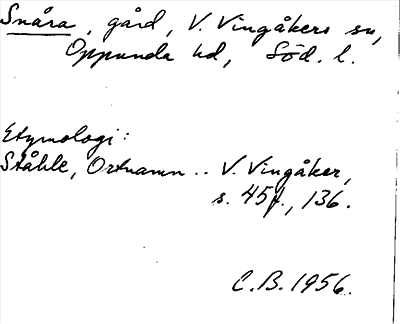 Snåra, gård, V. Vingåkers sn,
Oppunda hd, Söd. l.
Etymologi:
Ståhle, Ortnamn .. V. Vingåker,
s. 45f., 136.
C.B. 1956.